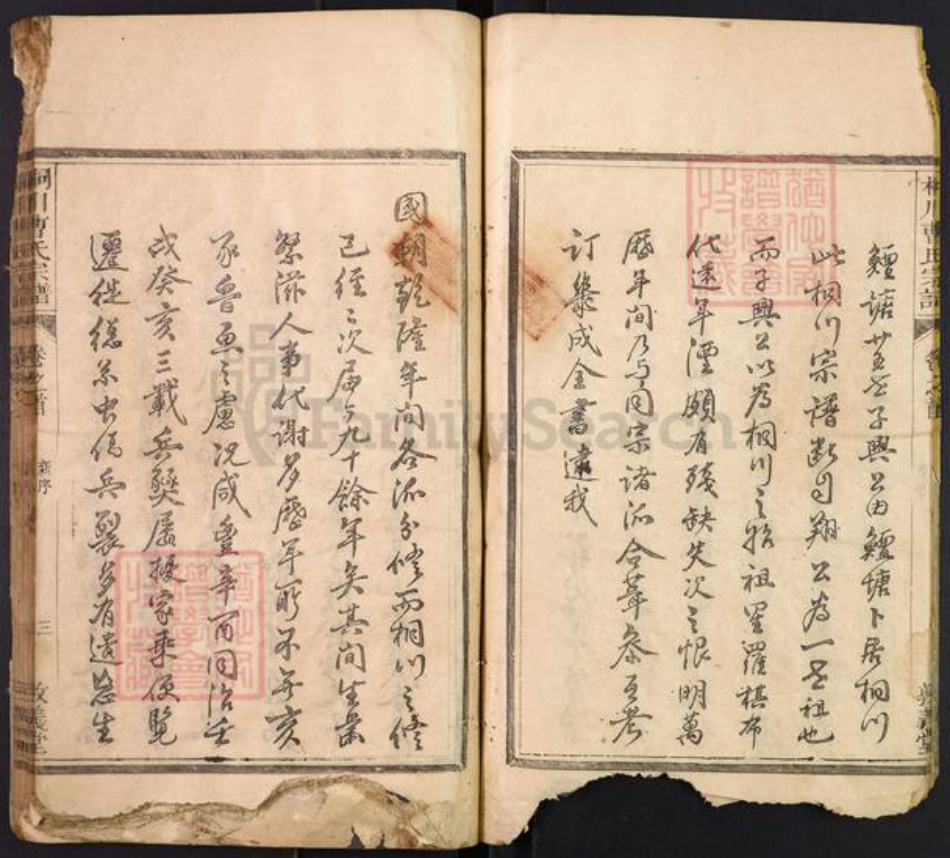 鱣塘廿五世子興公由鱣塘卜居桐川
此桐川宗譜斷自翔公為一世祖也
而子興公以為桐川之始祖星羅棋布
代遠年湮頗有殘缺失次之恨明萬
歷年間乃与同宗諸派合葺叅互考
訂集成全書逮我
國朝乾隆年間各派分修而桐川之修
已經三次屆今九十餘年矣其間生齒
繁滋人事代謝多歷年所不無亥
豕魯魚之慮況咸豐辛酉同治壬
戌癸亥三載兵燹屠掠家乘便覽
遷徙總系虫傷兵裂多有遺忘生
桐川曹氏宗譜
卷之首
新序
三
敦義堂
FamilySearch